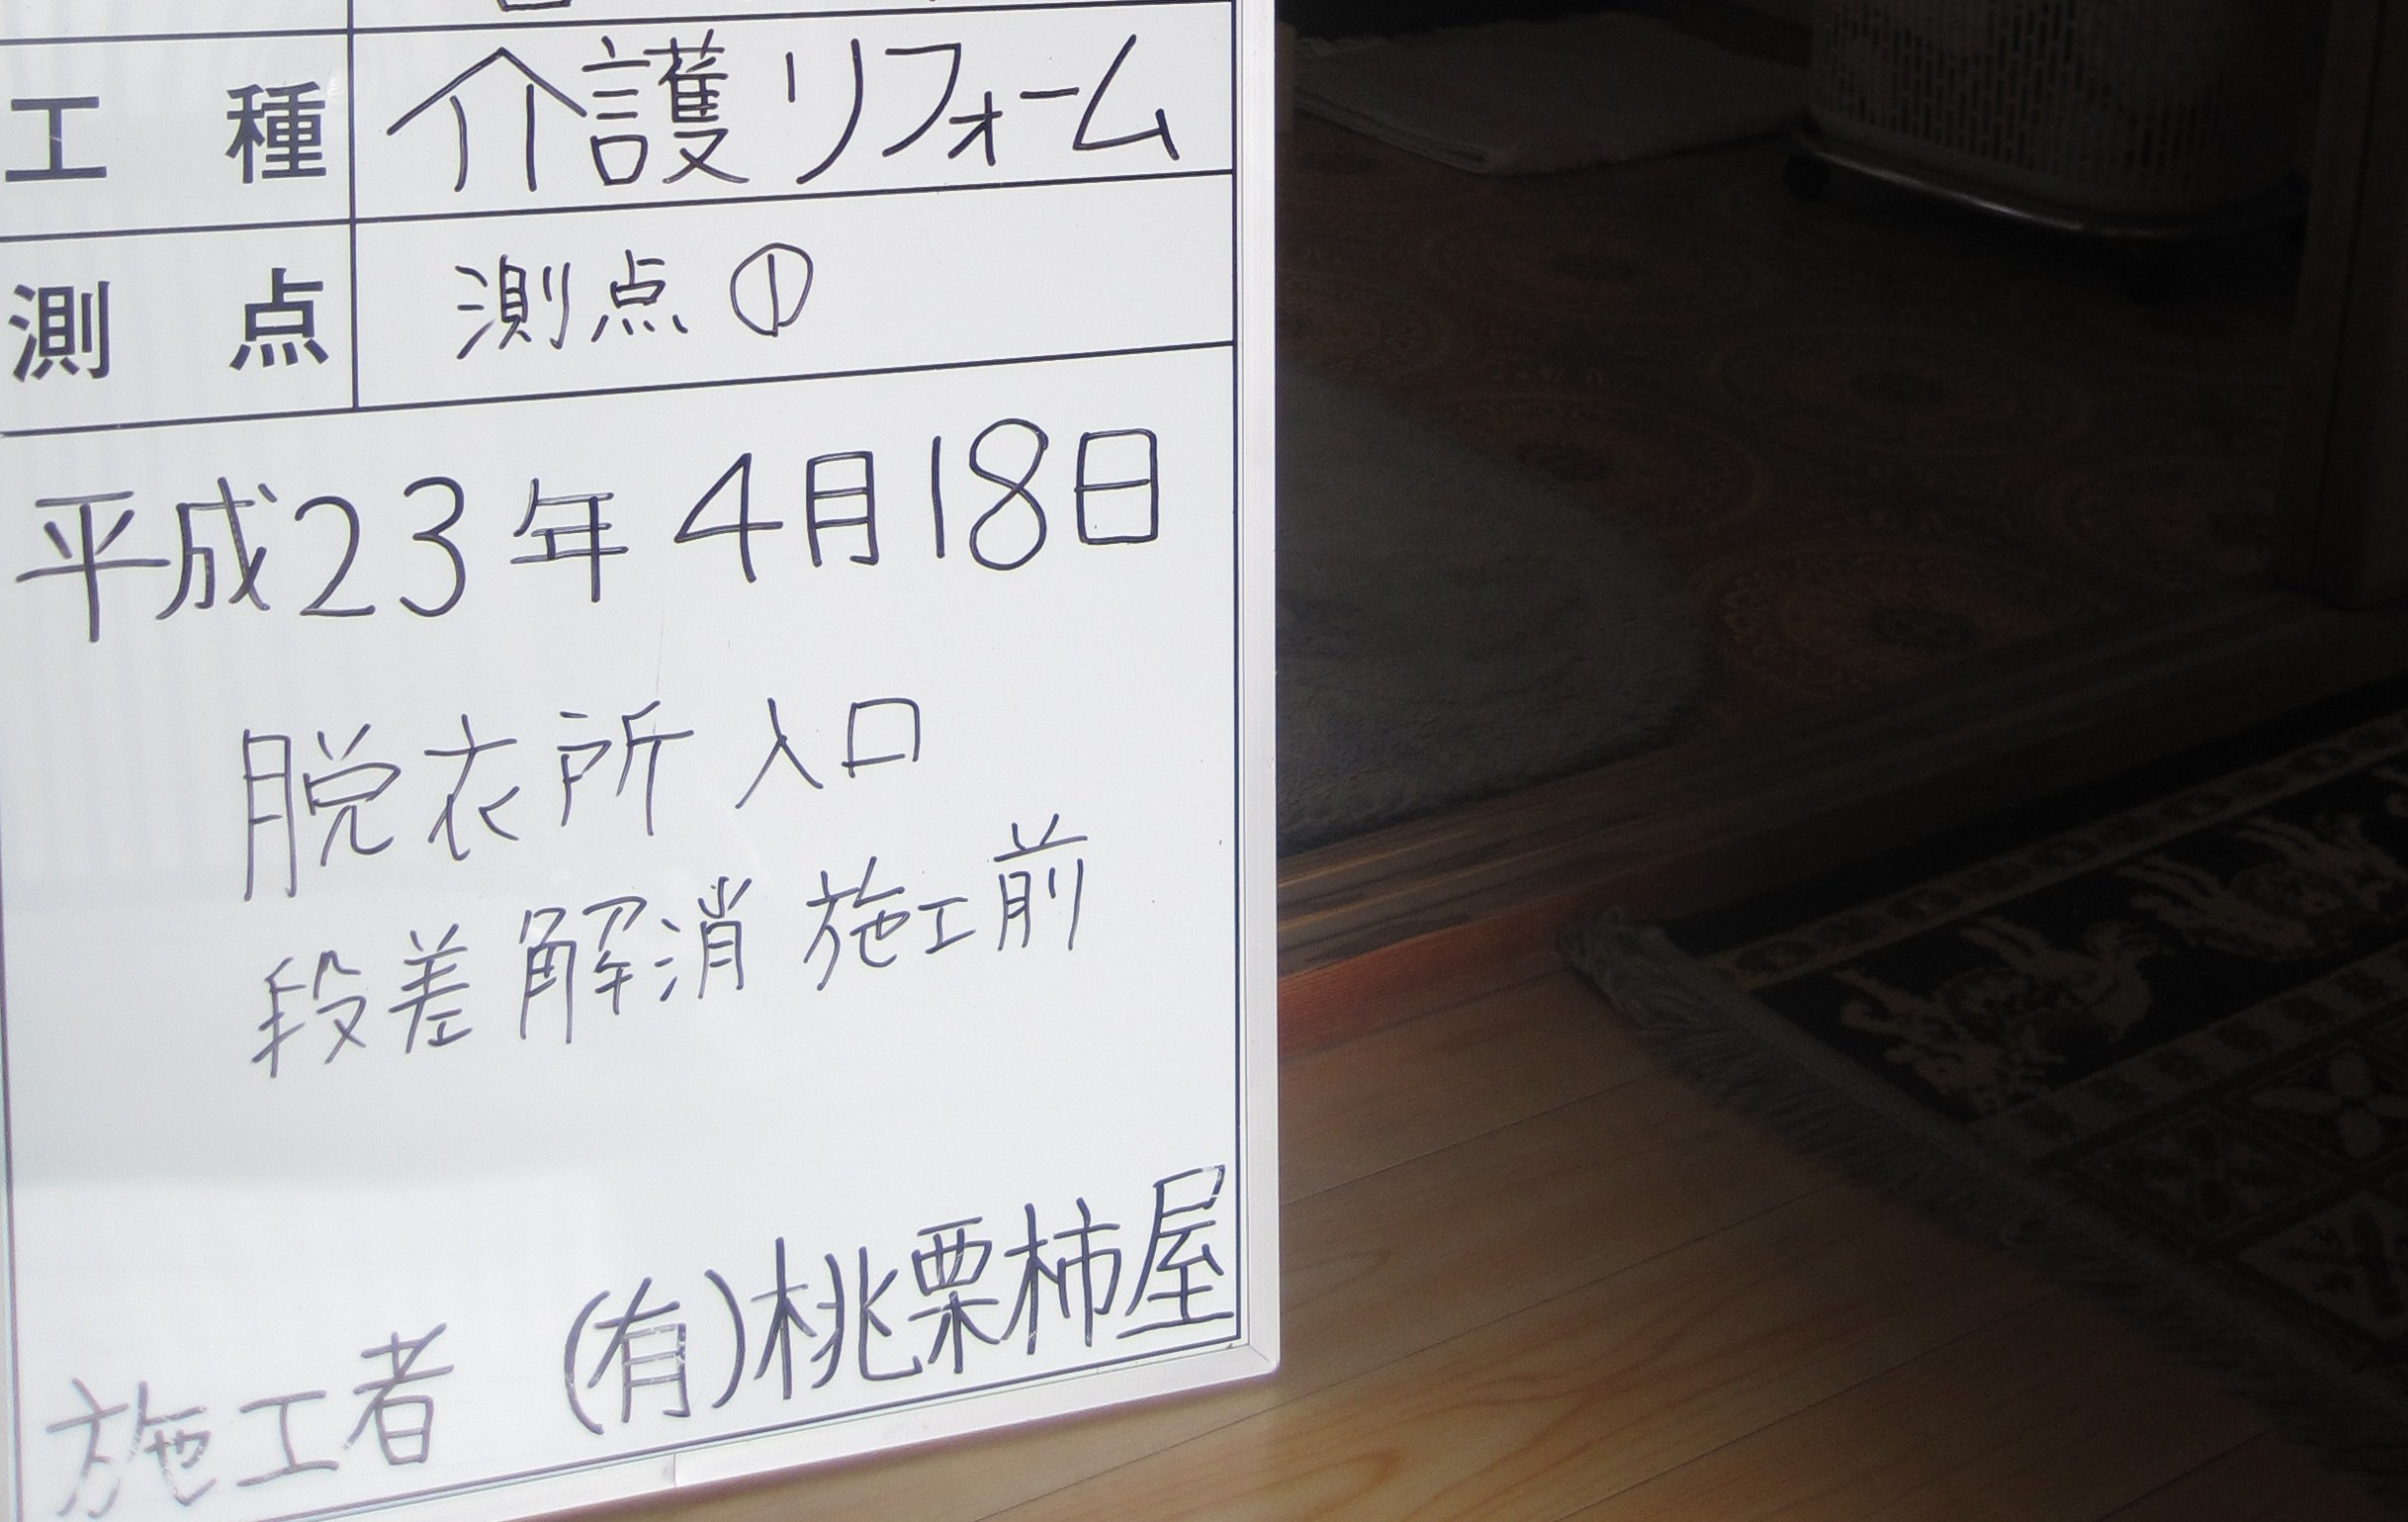 工種 介護リフォーム
測点 測点①
平成23年4月18日
脱衣所入口
段差解消施工前
施工者 (有)桃栗柿屋